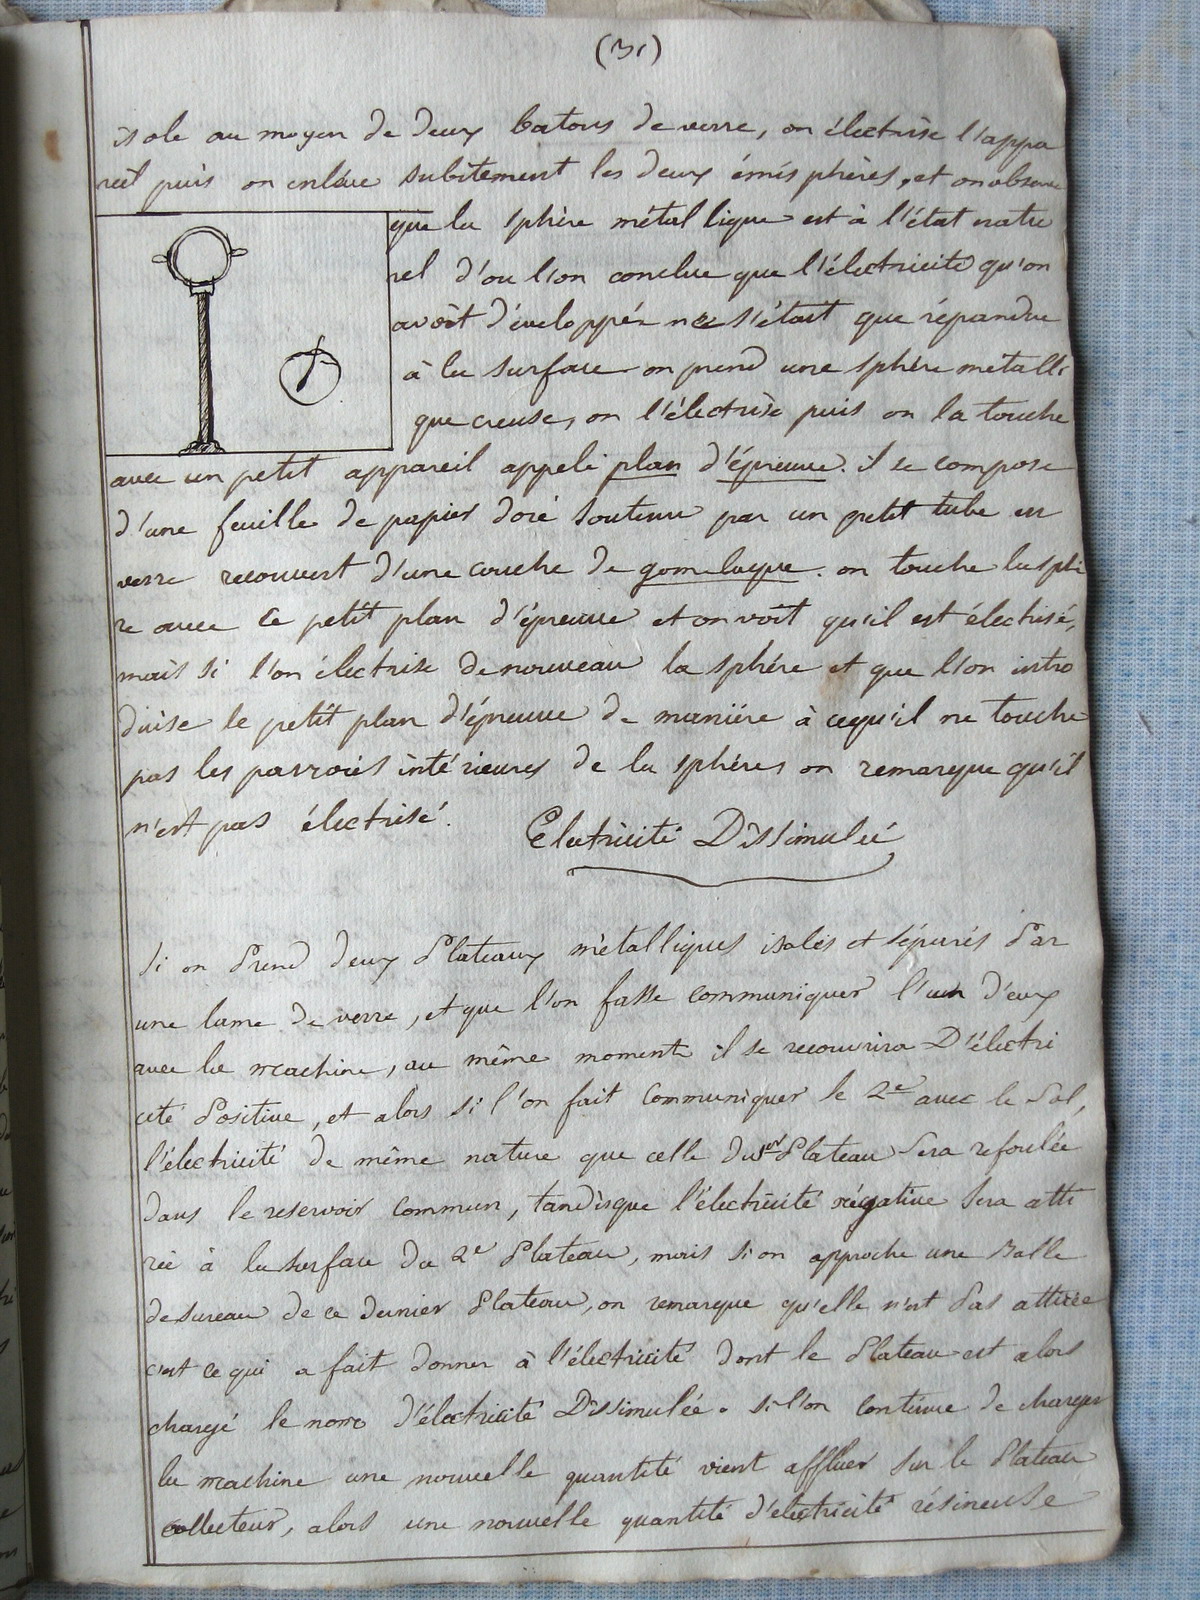 (31)
isole au moyen de deux batons de verre, on électrise l'appa
reil puis on enlève subitement les deux émisphères, et on observe
que la sphère métallique est à l'état natu
rel d'ou l'on conclue que l'électricité qu'on
avoit développée ne s'étoit que répandue
à la surface on prend une sphère metalli
que creuse, on l'électrise puis on la touche
avec un petit appareil appelé plan d'épreuve. il se compose
d'une feuille de papier doré soutenu par un petit tube en
verre recouvert d'une couche de gom-laque. on touche la sphè
re avec ce petit plan d'épreuve et on voit qu'il est électrisé,
mais si l'on électrise de nouveau la sphère et que l'on intro
duise le petit plan d'épreuve de manière à cequ'il ne touche
pas les parroies intérieures de la sphères on remarque qu'il
n'est pas électrisé.
Electricité Dissimulée
Si on Prend deux Plateaux métalliques isolés et séparés Par
une lame de verre, et que l'on fasse communiquer l'un d'eux
avec la machine, au même moment il se recouvrira D'électri
cité Positive, et alors si l'on fait Communiquer le 2e avec le Sol,
l'électricité de même nature que celle du 1er Plateau Sera refoulée
dans le reservoir commun, tandisque l'électricité négative Sera atti
rée à la surface du 2e Plateau, mais si on approche une Balle
de sureau de ce dernier Plateau, on remarque qu'elle n'est Pas attirée
c'est ce qui a fait donner à l'électricité dont le Plateau est alors
chargé le nom d'électricité Dissimulée. si l'on continue de charger
la machine une nouvelle quantité vient affluer sur le Plateau
collecteur, alors une nouvelle quantité d'électricité résineuse